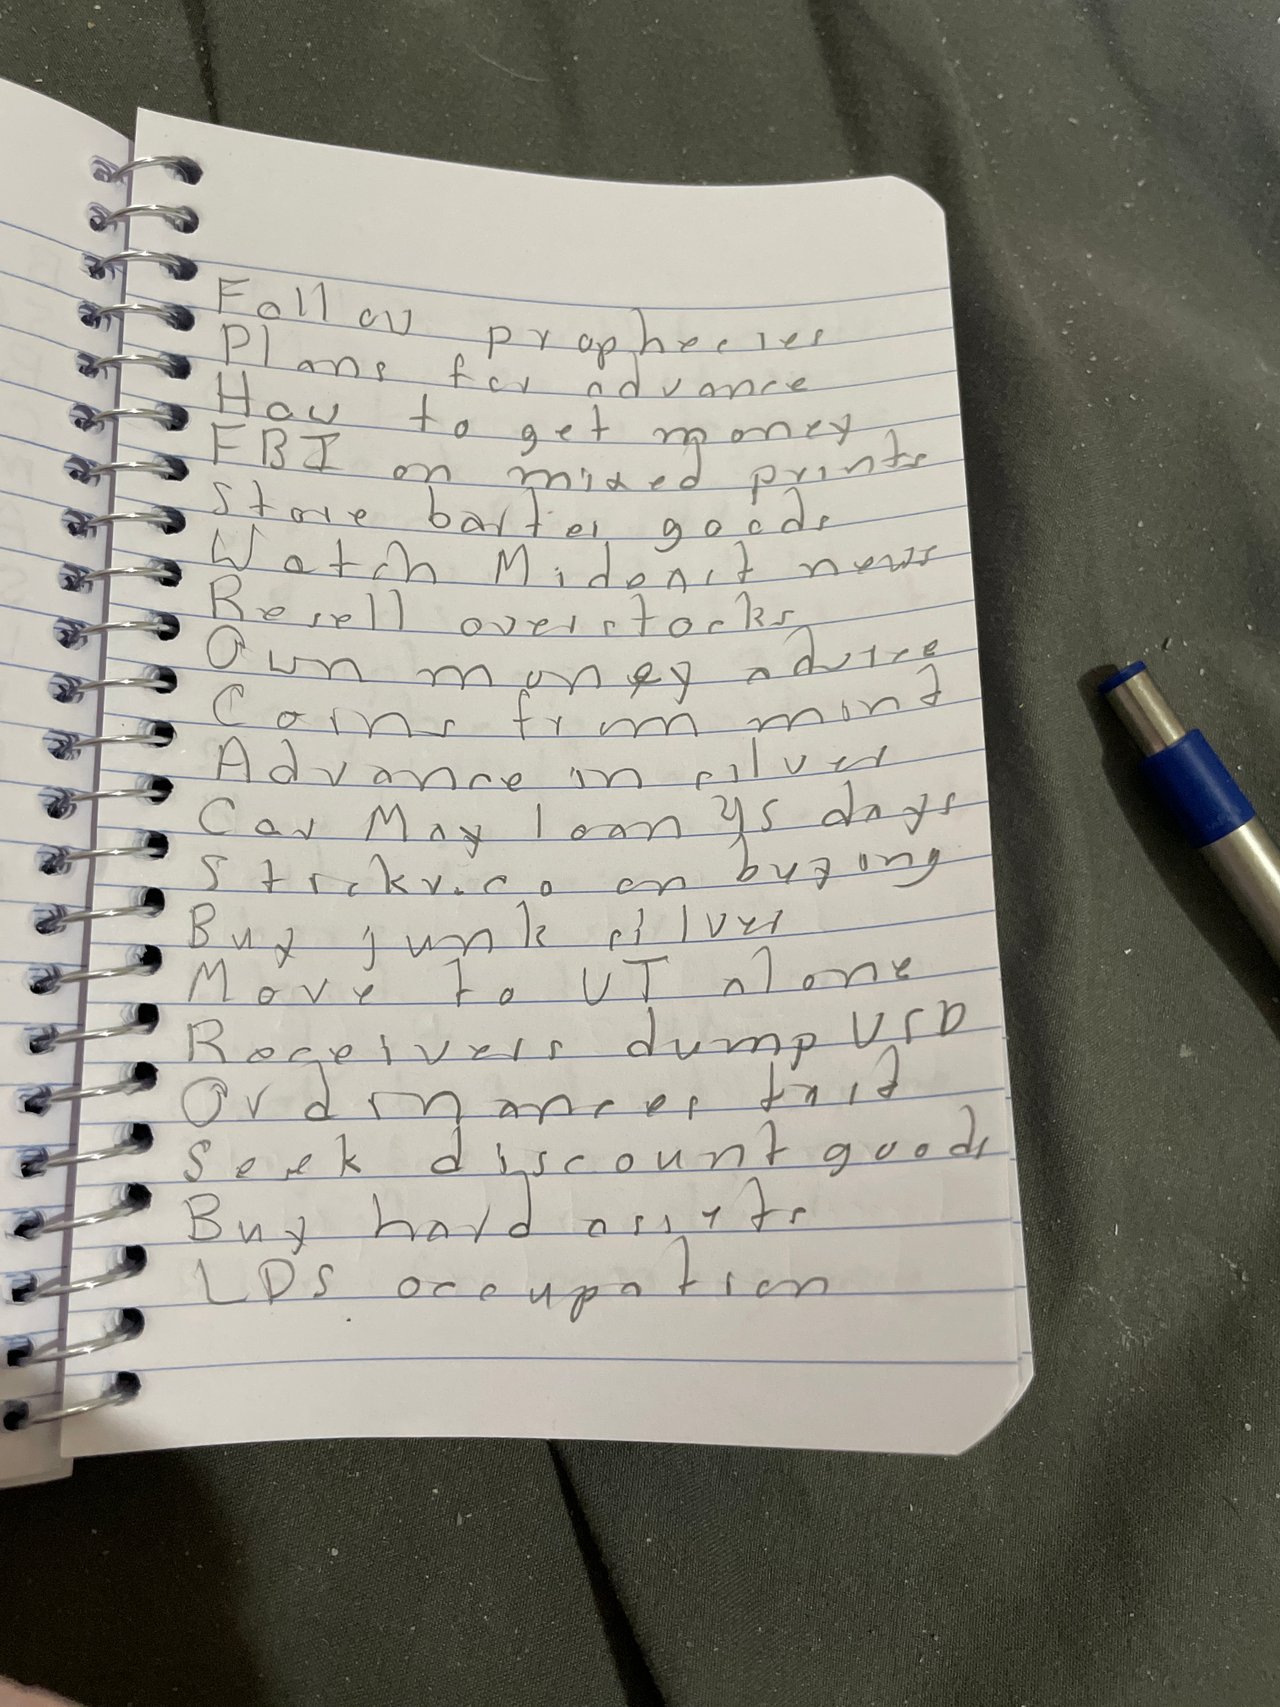 Follow prophecies
Plans for advance
How to get money
FBI on mixed prints
Store barter goods
Watch Mideast news
Resell overstocks
Own money advice
Coins from mint
Advance in silver
Car May loan 45 days
on buying
Buy junk silver
Move to UT alone
Receivers dump USD
Ordinances
Seek discount goods
Buy hard assets
LDS occupation